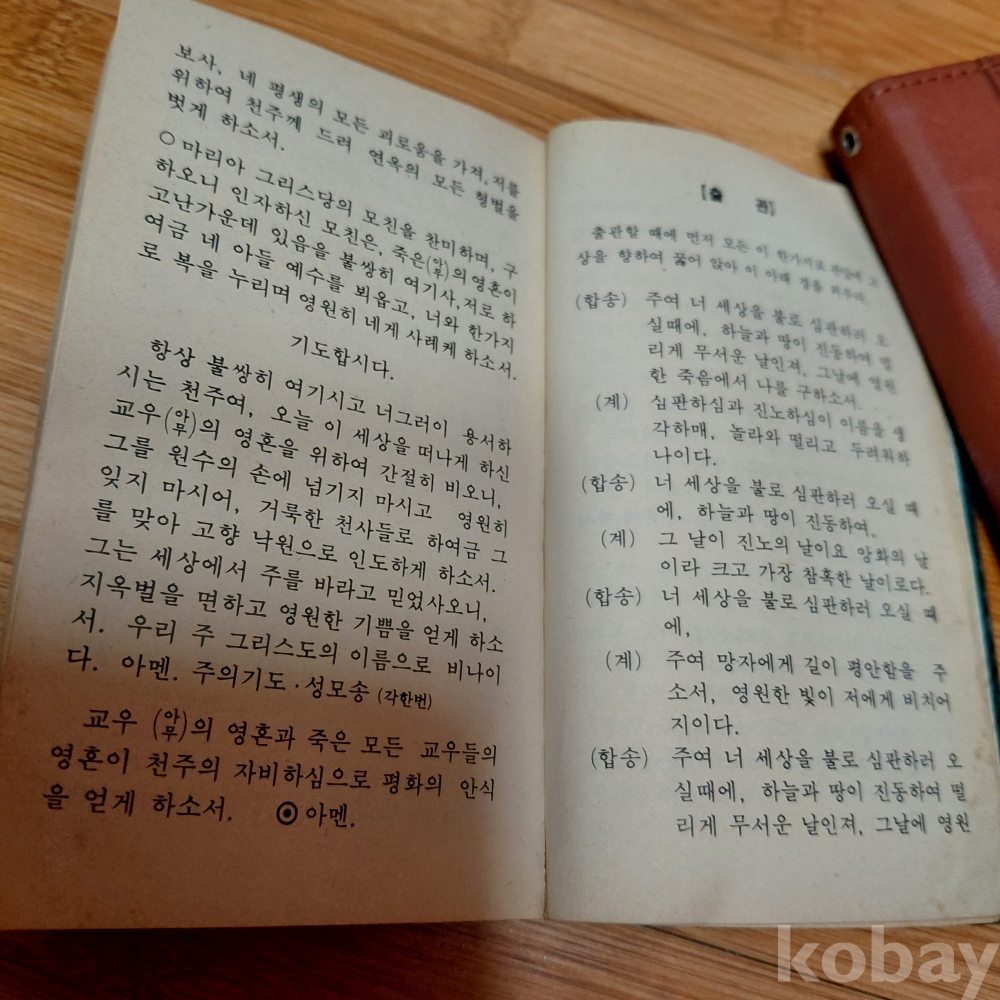 보사, 네 평생의 모든 괴로움을 가져, 저를
위하여 천주께 드려 연옥의 모든 형벌을
벗게 하소서.
○ 마리아 그리스당의 모친을 찬미하며, 구
하오니 인자하신 모친은, 죽은(아무)의 영혼이
고난가운데 있음을 불쌍히 여기사, 저로 하
여금 네 아들 예수를 뵈옵고, 너와 한가지
로 복을 누리며 영원히 네게 사례케 하소서.
기도합시다.
항상 불쌍히 여기시고 너그러이 용서하
시는 천주여, 오늘 이 세상을 떠나게 하신
교우(아무)의 영혼을 위하여 간절히 비오니,
그를 원수의 손에 넘기지 마시고 영원히
잊지 마시어, 거룩한 천사들로 하여금 그
를 맞아 고향 낙원으로 인도하게 하소서.
그는 세상에서 주를 바라고 믿었사오니,
지옥벌을 면하고 영원한 기쁨을 얻게 하소
서. 우리 주 그리스도의 이름으로 비나이
다. 아멘. 주의기도·성모송 (각한번)
교우 (아무)의 영혼과 죽은 모든 교우들의
영혼이 천주의 자비하심으로 평화의 안식
을 얻게 하소서. ◉ 아멘.
[출 관]
출관할 때에 먼저 모든 이 한가지로 고
상을 향하여 꿇어 앉아 이 아래 경을 외우라.
(합송) 주여 너 세상을 불로 심판하러 오
실때에, 하늘과 땅이 진동하여 떨
리게 무서운 날인져, 그날에 영원
한 죽음에서 나를 구하소서.
(계) 심판하심과 진노하심이 이름을 생
각하매, 놀라와 떨리고 두려워하
나이다.
(합송) 너 세상을 불로 심판하러 오실 때
에, 하늘과 땅이 진동하여,
(계) 그 날이 진노의 날이요 앙화의 날
이라 크고 가장 참혹한 날이로다.
(합송) 너 세상을 불로 심판하러 오실 때
에,
(계) 주여 망자에게 길이 평안함을 주
소서, 영원한 빛이 저에게 비치어
지이다.
(합송) 주여 너 세상을 불로 심판하러 오
실때에, 하늘과 땅이 진동하여 떨
리게 무서운 날인져, 그날에 영원
kobay